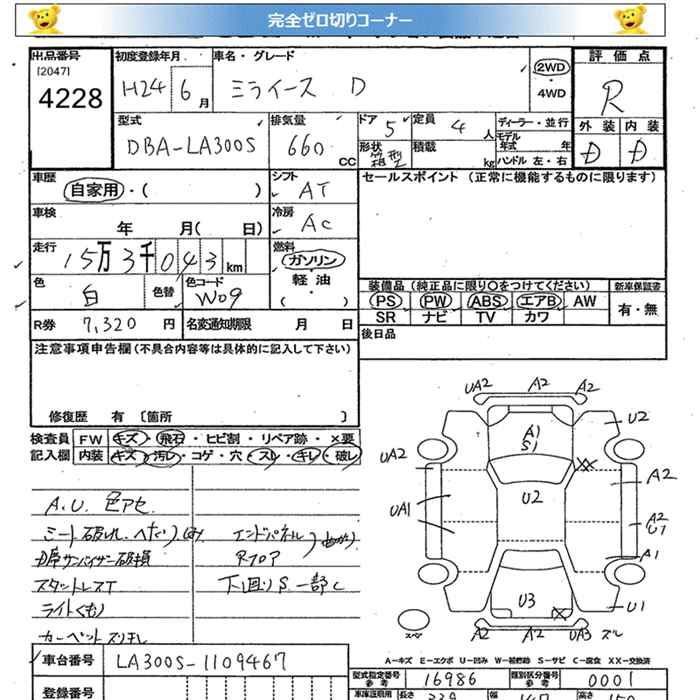 完全ゼロ切りコーナー
出品番号 初度登録年月 車名・グレード 2WD 評価点
[2047] H24 6月 ミライース D 4WD R
4228
型式 排気量 ドア 5 定員 4人 ディーラー・並行 外装 内装
DBA-LA300S 660cc 形状 箱型 積載 kg モデル年式 年 D D
ハンドル 左・右
車歴 シフト セールスポイント (正常に機能するものに限ります)
自家用・( ) AT
車検 年 月( 日) 冷房 AC
走行 15万3千043km 燃料 ガソリン
軽油
色 白 色替 色コード W09 装備品 (純正品に限り○をつけてください) 新車保証書
PS PW ABS エアB AW 有・無
SR ナビ TV カワ
R券 7,320円 名変通知期限 月 日 後日品
注意事項申告欄(不具合内容等は具体的に記入して下さい)
修復歴 有 〔箇所 〕
検査員 FW キズ・飛石・ヒビ割・リペア跡・×要
記入欄 内装 キズ・汚レ・コゲ・穴・スレ・キレ・破レ
UA2 A2 A2
U2
A1
S1
UA2 XX A2
U2
UA1 A2
U1
A1
U3 X U1
A2 A2 UA3 ズレ
スペア
A.U. 色アセ
シート破れ、へたり
エンドパネル 曲がり
D席サンバイザー破損 Rフロア
スタットレスT 下回りS一部C
ライトくもり
カーペットズリキレ
車台番号 LA300S-1109467
登録番号
A-キズ E-エクボ U-凹み W-補修跡 S-サビ C-腐食 XX-交換済
型式指定番号 参考 16986 類別区分番号 参考 0001
車体証明用 長さ 339 幅 高さ 150